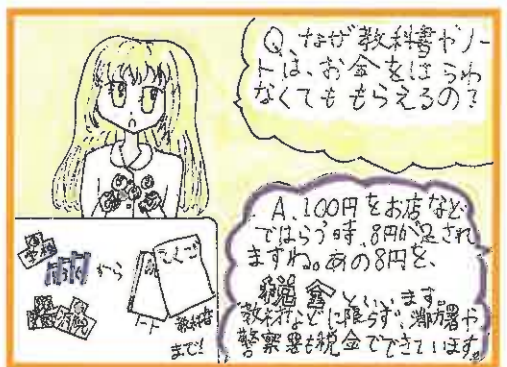 Q、なぜ教科書やノー
トは、お金をはらわ
なくてももらえるの?
A、100円をお店など
ではらう時、8円が足され
ますね。あの8円を、
税金といいます。
教材などに限らず、消防署や
警察署も税金でできています。
学校
から
こくご
ノート
教科書
まで!